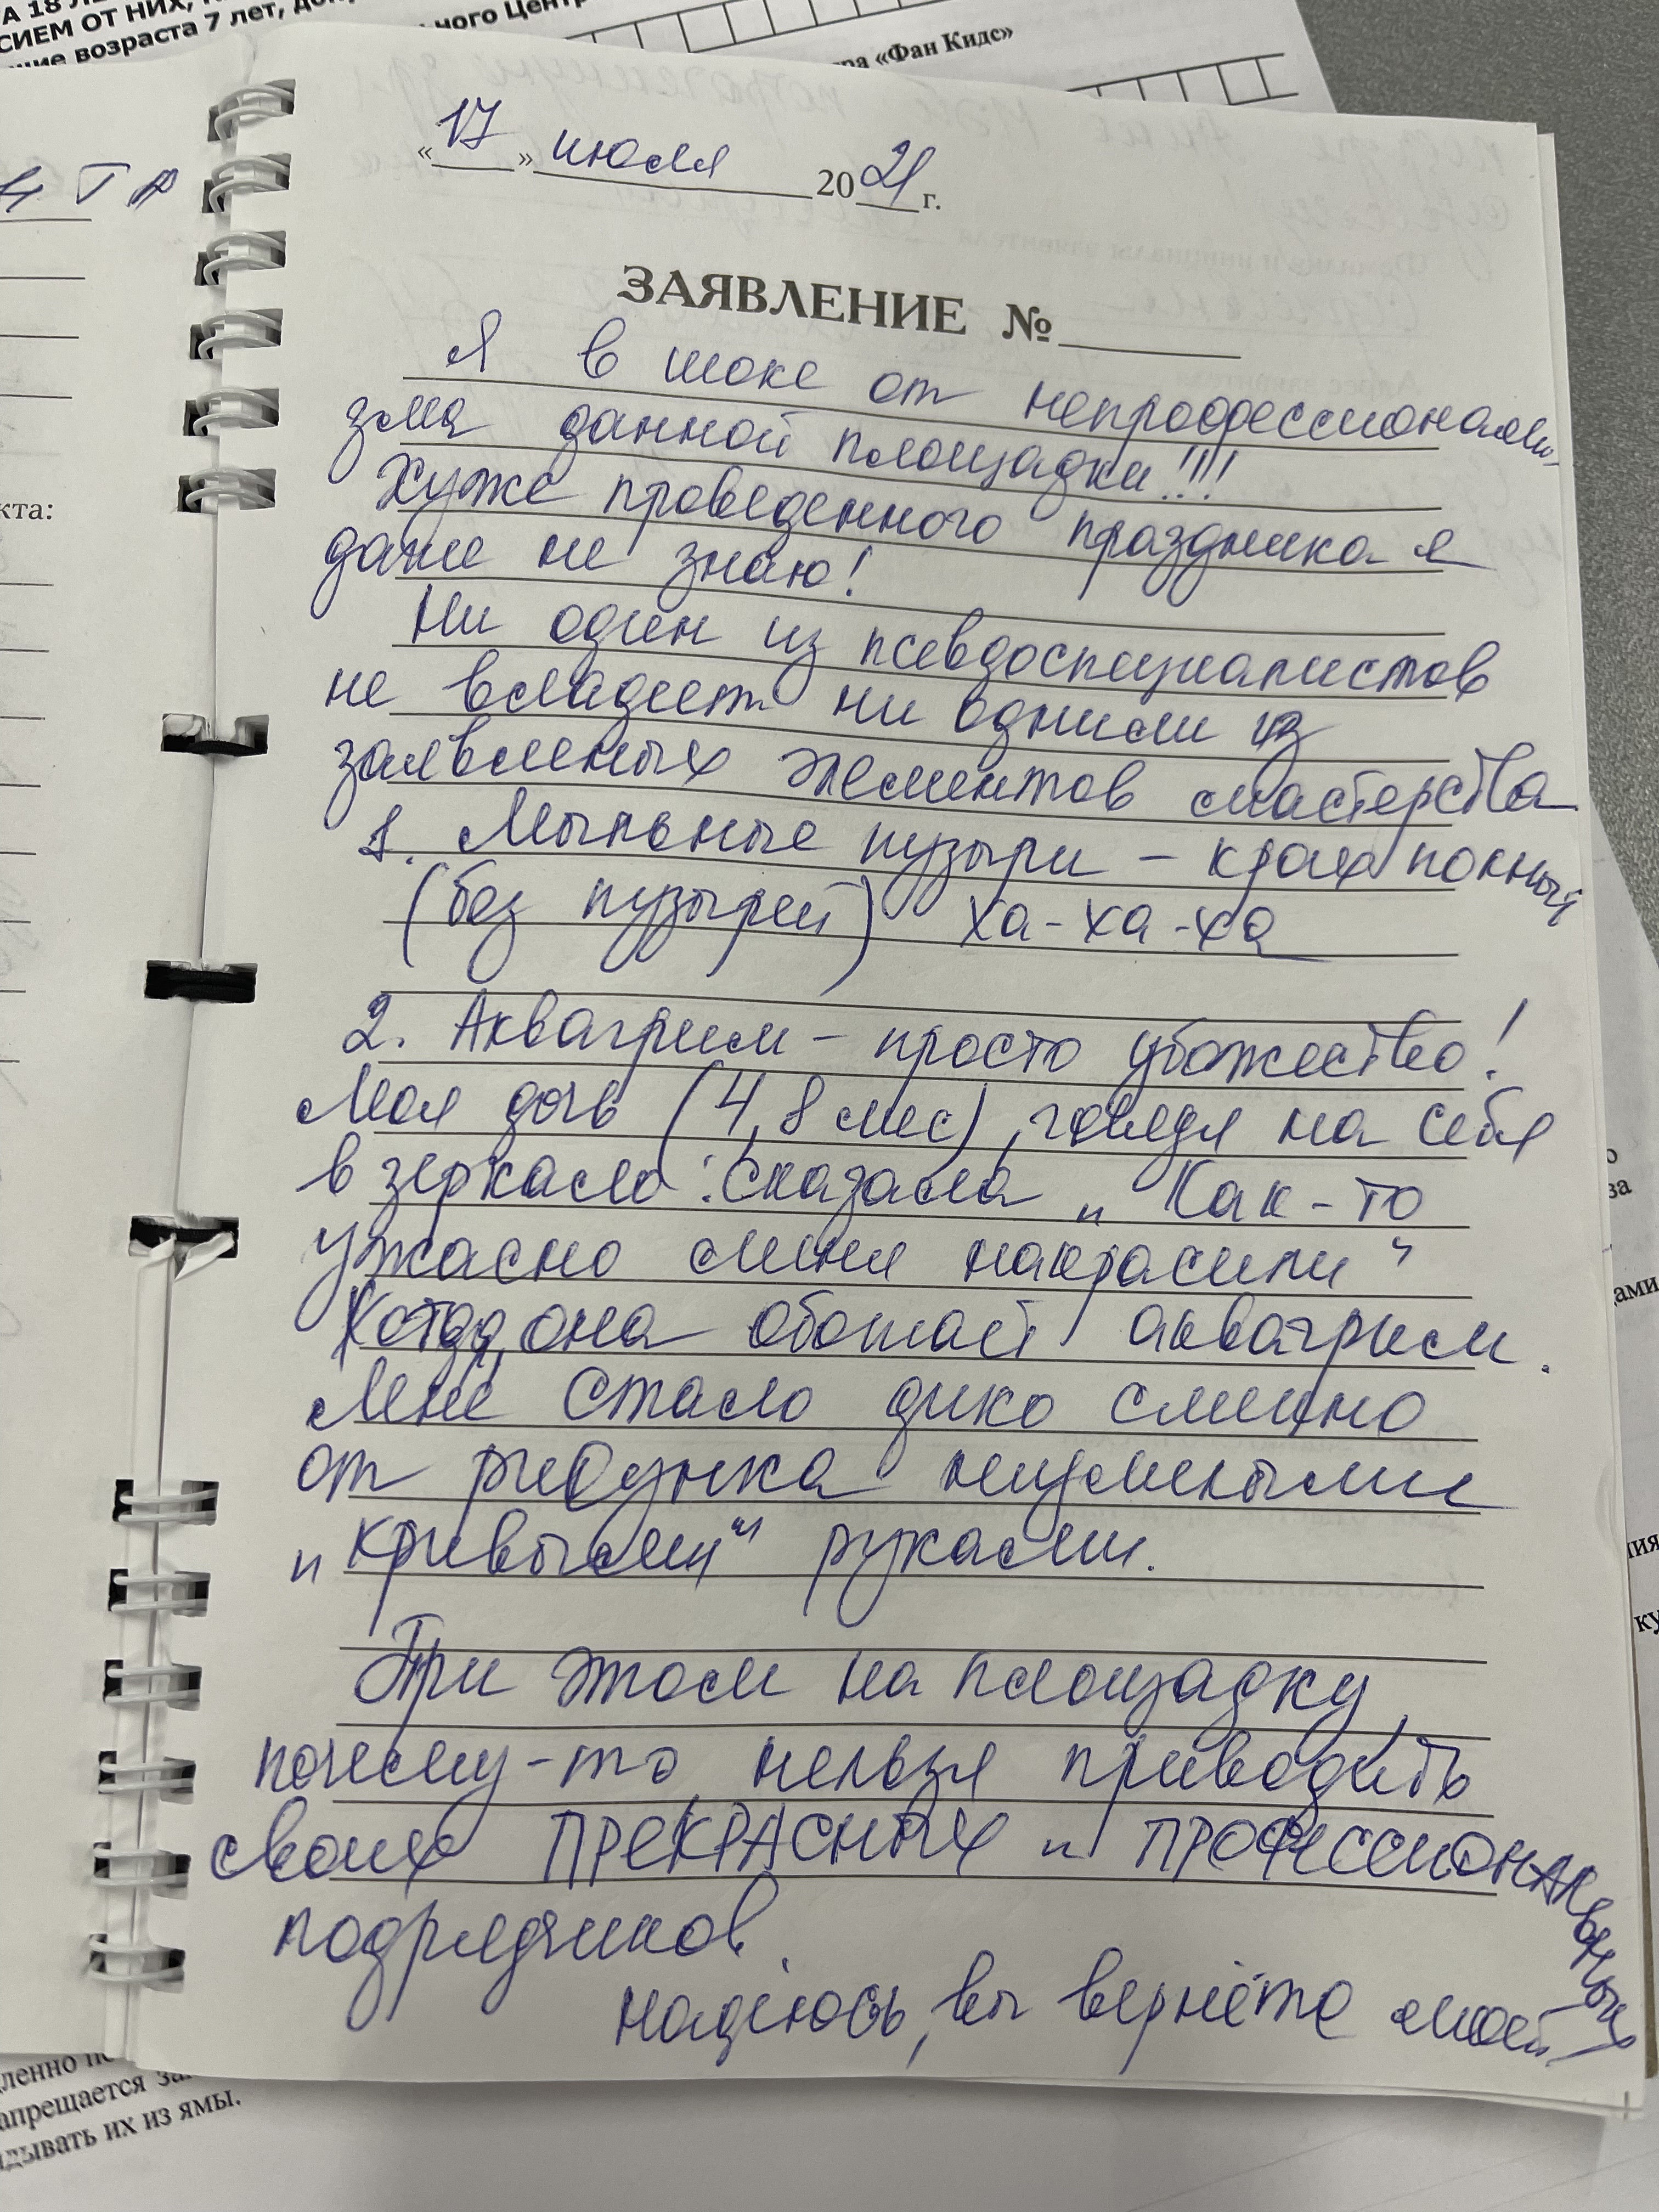 А 18 ЛЕ
СИЕМ ОТ НИХ,
шие возраста 7 лет,
ьного Центр
ра «Фан Кидс»
« 17 » июля 2021 г.
ЗАЯВЛЕНИЕ №
Я в шоке от непрофессионали-
зма данной площадки!!!
Хуже проведенного праздника я
даже не знаю!
Ни один из псевдоспециалистов
не владеет ни одним из
заявленых элементов мастерства
1. Мыльные пузыри – крах полный
(без пузырей) ха-ха-ха
2. Аквагрим – просто убожество!
Моя дочь (4,8 мес), глядя на себя
в зеркало: сказала „Как-то
ужасно меня накрасили"
Когда, она обожает аквагрим.
Мне стало дико смешно
от рисунка неумелыми
„кривыми" руками.
При этом на площадку,
почему-то нельзя приводить
своих ПРЕКРАСНЫХ и ПРОФЕССИОНАЛЬНЫХ
подрядчиков.
надеюсь, вы вернёте моей
кта:
ами
ния
ку
ленно по
апрещается за
дывать их из ямы.